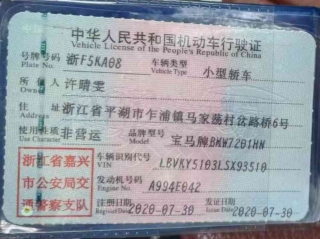 中华人民共和国机动车行驶证
Vehicle License of the People's Republic of China
号牌号码 浙F5KA08 车辆类型 小型轿车
Plate No. Vehicle Type
所有人 许晴雯
住址 浙江省平湖市乍浦镇马家荡村岔路桥6号
使用性质 非营运 品牌型号 宝马牌BMW7201HN
Use Character
浙江省嘉兴
市公安局交
通警察支队
车辆识别代号 LBVKY5103LSX93510
VIN
发动机号码 A994E042
Engine No.
注册日期 2020-07-30 发证日期 2020-07-30
Register Date Issue Date